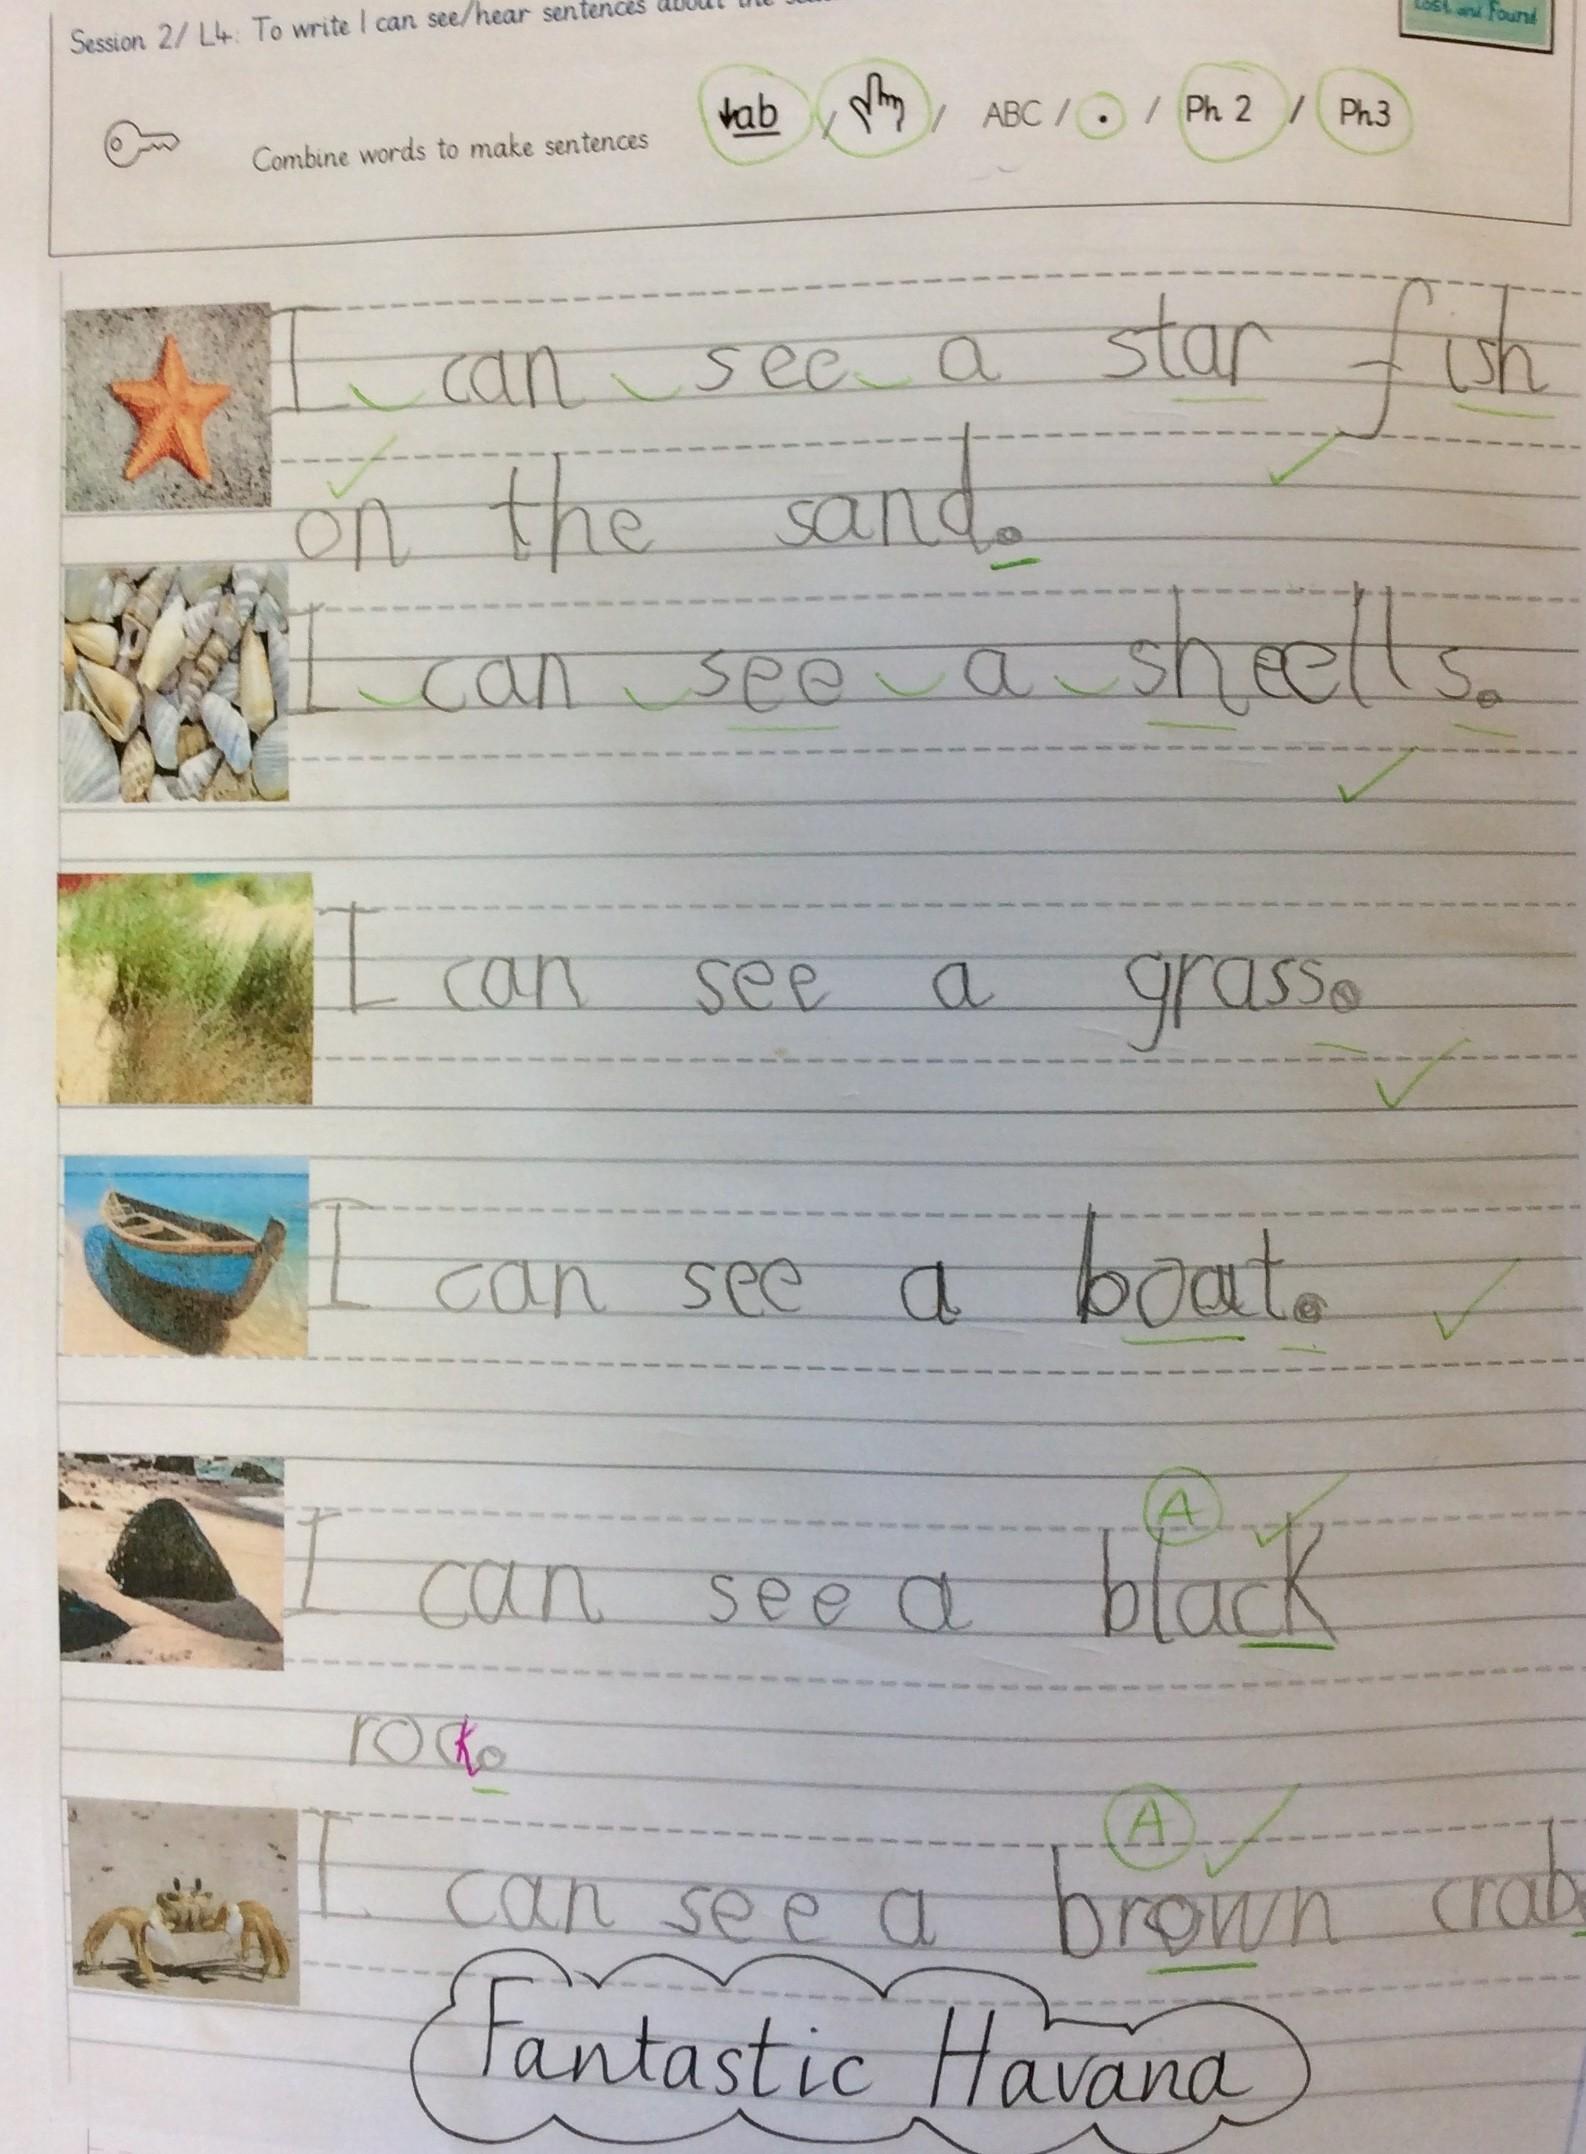 Session 2/ L4: To write I can see/hear sentences about the
Lost and Found
Combine words to make sentences ab / / ABC / . / Ph 2 / Ph3
I can see a star fish
on the sand.
I can see a sheells.
I can see a grass.
I can see a boat.
A
I can see a black
rock.
A
I can see a brown crab
Fantastic Havana